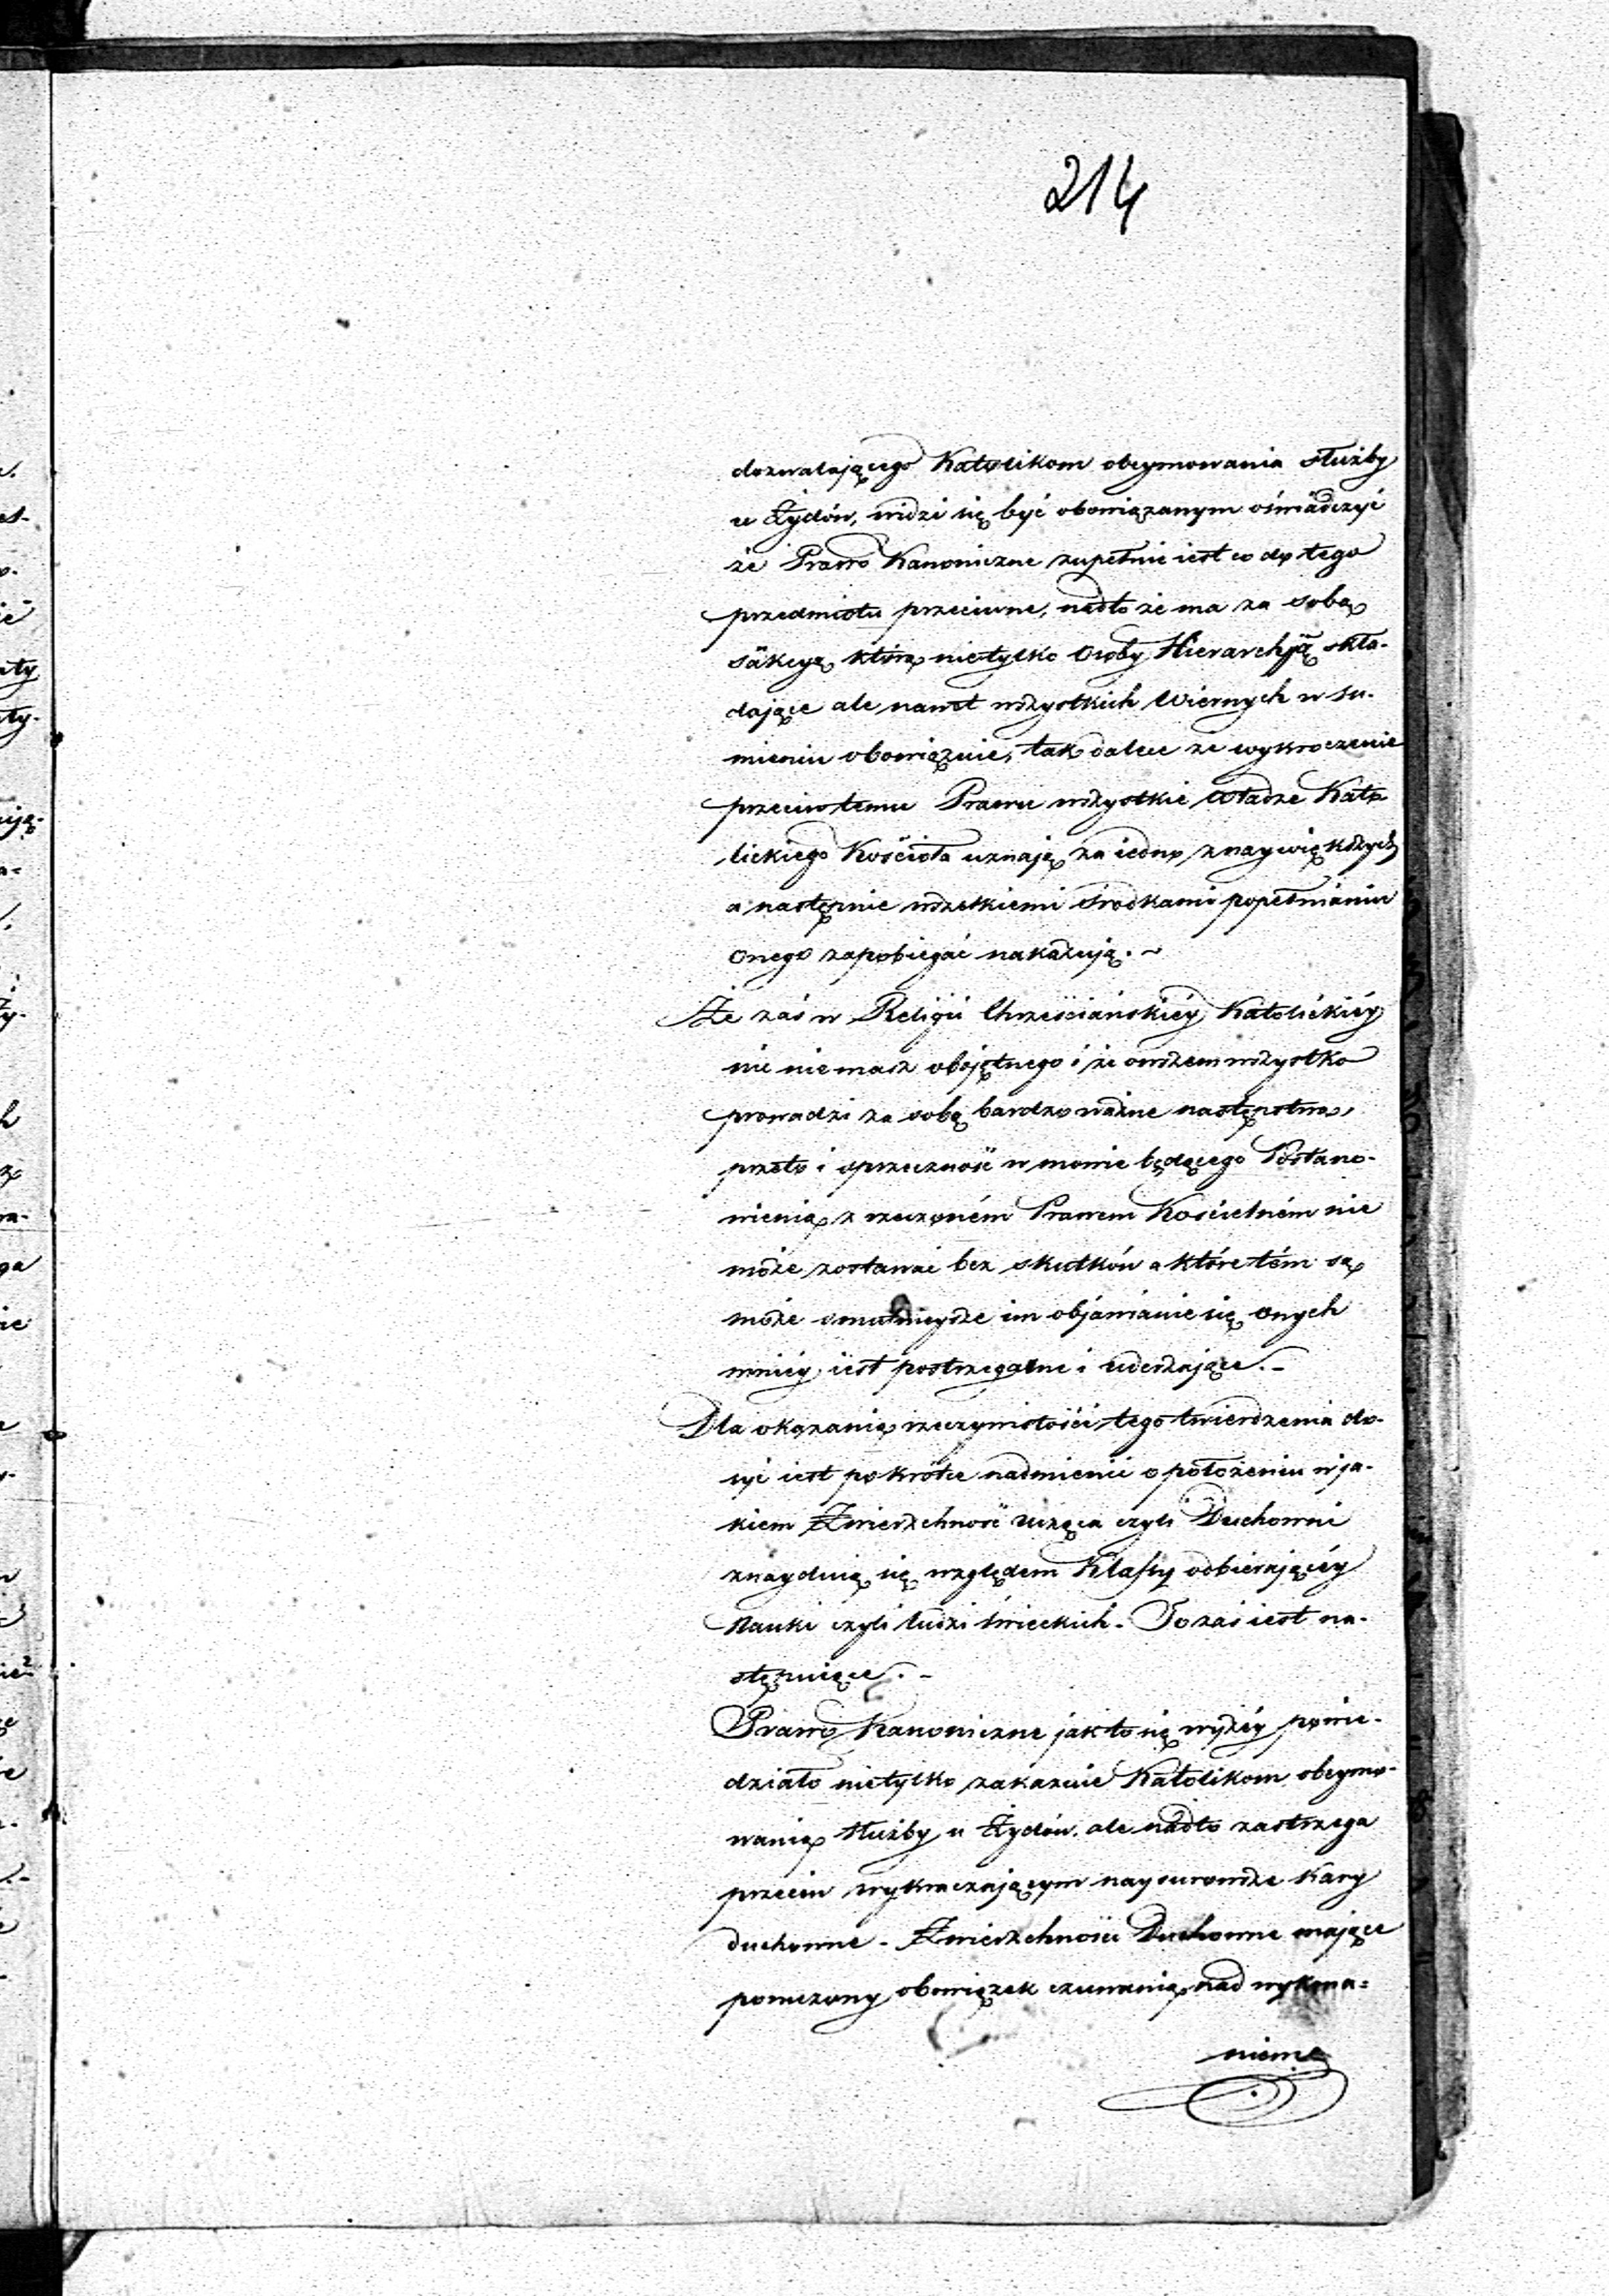 214
dozwalającego Katolikom obeymowania służby
u Żydów, widzi się być obowiązanym oświadczyć
że Prawo Kanoniczne zupełnie iest co do tego
przedmiotu przeciwne, nadto że ma za sobą
sankcyą którą nietylko Osoby Hierarchją skła-
dające ale nawet wszystkich Wiernych w su-
mieniu obowiązuie, tak dalece że wykroczenie
przeciw temu Prawu wszystkie Władze Kato
lickiego Kościoła uznają za iedno z naywiększych
a następnie wszelkiemi środkami popełnianiu
onego zapobiegać nakazują. ~
Że zaś w Religii Chrześciańskiéy Katolickiéy
nic nie masz obojętnego i że owszem wszystko
prowadzi za sobą bardzo ważne następstwa,
przeto i sprzeczność w mowie będącego Postano-
wienia z rzeczoném Prawem Kościelném nie
może zostawać bez skutków a które tém są
może smutnieysze im objawianie się onych
mniéy iest postrzegalne i uderzające. -
Dla okazania rzeczywistości tego twierdzenia do-
syć iest pokrótce nadmienić o położeniu w ja-
kiem Zwierzchność ucząca czyli Duchowni
znayduią się względem Klassy odbierającéy
Nauki czyli ludzi świeckich. To zaś iest na-
stępuiące. -
Prawo Kanoniczne jak to się wyżéy powie-
działo nietylko zakazuie Katolikom obeymo-
wania służby u Żydów, ale nadto zastrzega
przeciw wykraczającym naysurowsze Kary
duchowne - Zwierzchności Duchowne mające
poruczony obowiązek czuwania nad wykona=
niem